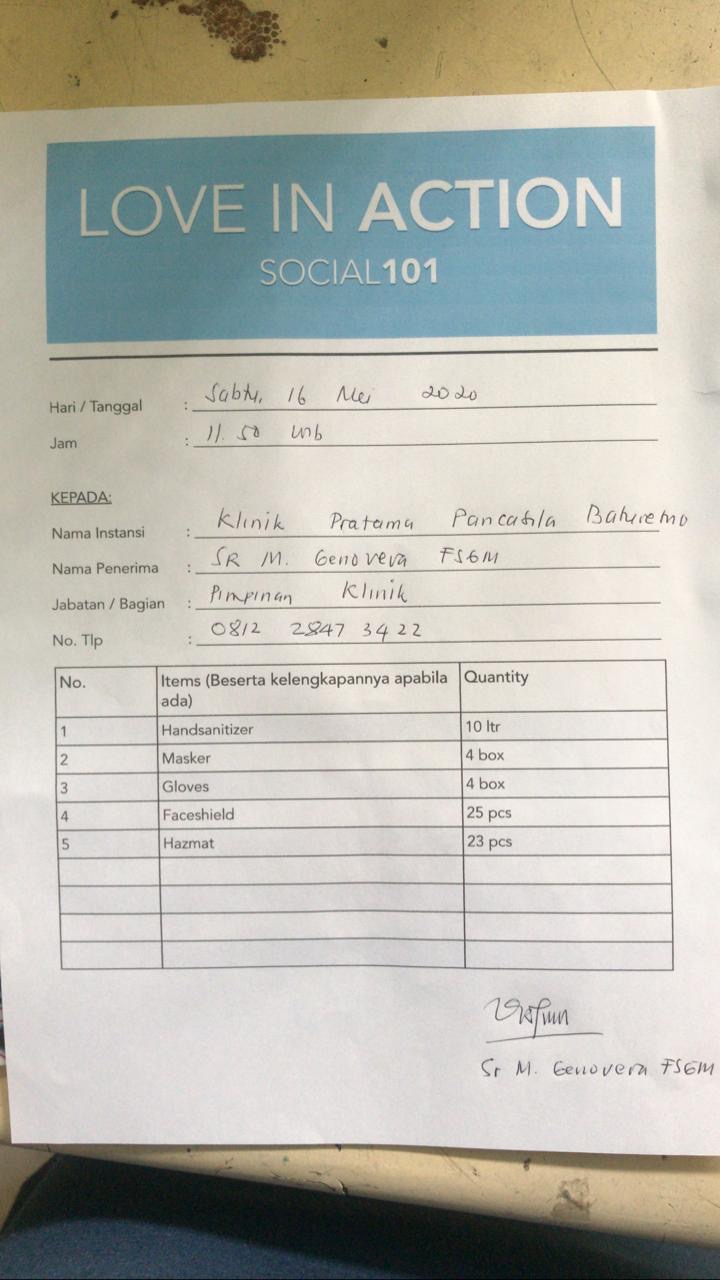 LOVE IN ACTION
SOCIAL101
Hari / Tanggal : Sabtu, 16 Mei 2020
Jam : 11.50 WIB
KEPADA:
Nama Instansi : Klinik Pratama Pancasila
Nama Penerima : SR M. Genovera FSGM
Jabatan / Bagian : Pimpinan Klinik
No. Tlp : 0812 2847 3422
No. Items (Beserta kelengkapannya apabila ada) Quantity
1 Handsanitizer 10 ltr
2 Masker 4 box
3 Gloves 4 box
4 Faceshield 25 pcs
5 Hazmat 23 pcs
Sr M. Genovera FSGM